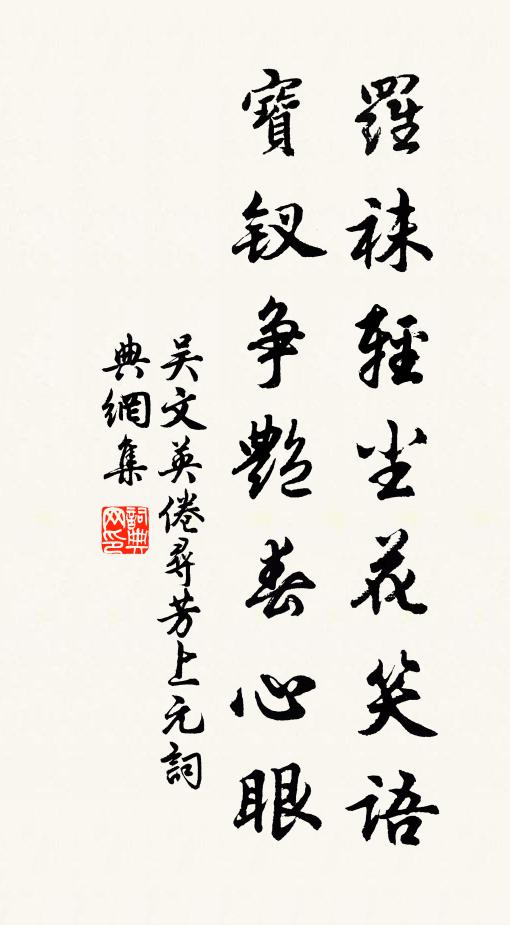 羅袜輕尘花笑語
寶钗争艷春心眼
吴文英倦尋芳上元詞
典網集
詞典网印